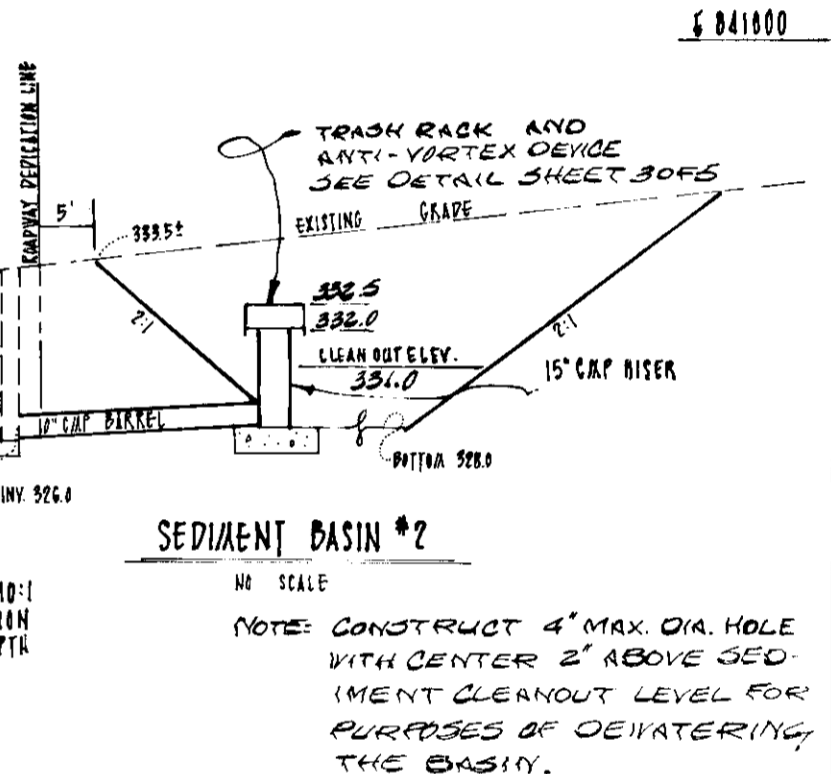 841000
ROADWAY DEDICATION LINE
TRASH RACK AND
ANTI-VORTEX DEVICE
SEE DETAIL SHEET 3 OF 5
5'
333.5±
EXISTING GRADE
2:1
332.5
332.0
2:1
CLEAN OUT ELEV.
331.0
15" CMP RISER
10" CMP BARREL
BOTTOM 328.0
INV. 326.0
SEDIMENT BASIN #2
NO SCALE
10:1
NOTE: CONSTRUCT 4" MAX. DIA. HOLE
WITH CENTER 2" ABOVE SED-
IMENT CLEANOUT LEVEL FOR
PURPOSES OF DEWATERING
THE BASIN.